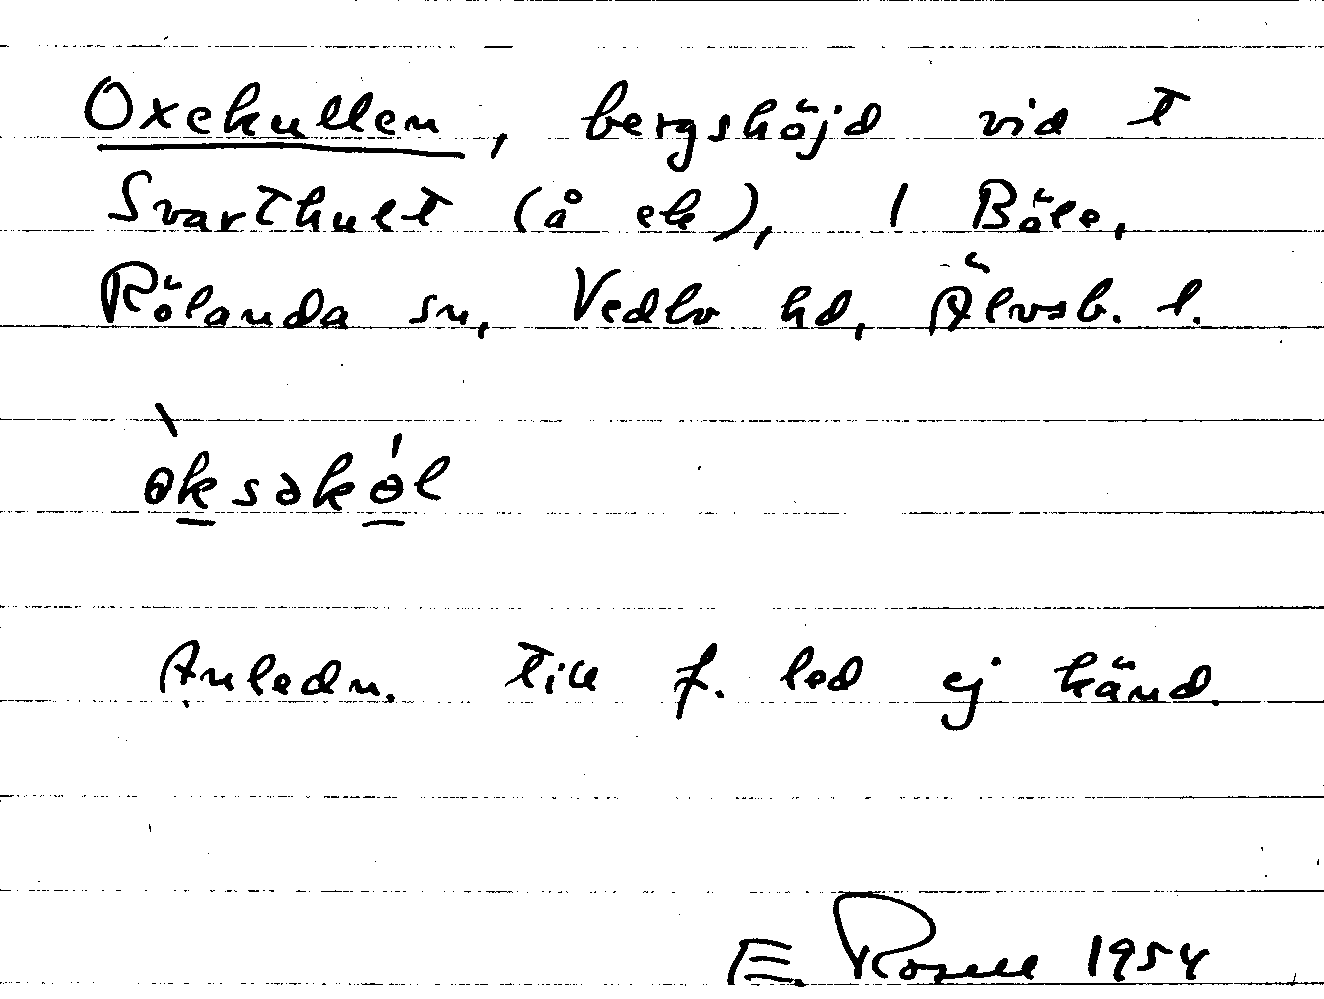 Oxekullen, bergshöjd vid t
Svarthult (å ek), 1 Böle,
Rölanda sn, Vedbo hd, Älvsb. l.
òksəkɵ́l
Anledn. till f. led ej känd.
E. Rosell 1954